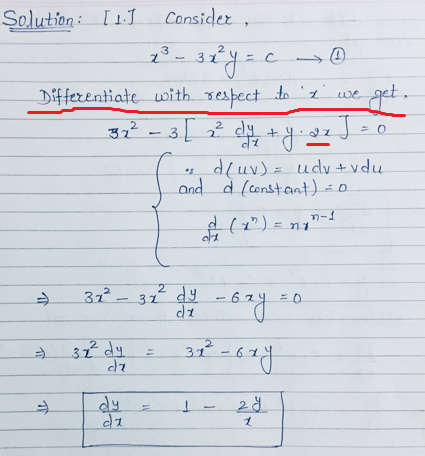 Solution: [1.] Consider,
x³ - 3x²y = c → ①
Differentiate with respect to 'x' we get.
3x² - 3[ x² dy/dx + y·2x ] = 0
∵ d(uv) = udv + vdu
and d(constant) = 0
d/dx (xⁿ) = nxⁿ⁻¹
⇒ 3x² - 3x² dy/dx - 6xy = 0
⇒ 3x² dy/dx = 3x² - 6xy
⇒ dy/dx = 1 - 2y/x